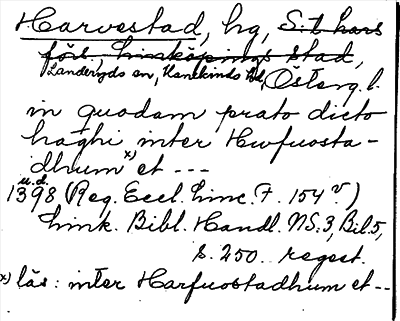 Harvestad, hg, S:t Lars
förs., Linköpings stad,
Landeryds sn, Hanekinds hd, Österg. l.
in quodam prato dicto
haghi inter Hwfuosta-
dhum x) et ---
u.d.
1398 (Reg. Eccl. Linc. F. 154 v)
Link. Bibl. Handl. NS:3, Bil. 5,
s. 250. regest.
x) läs: inter Harfuostadhum et --